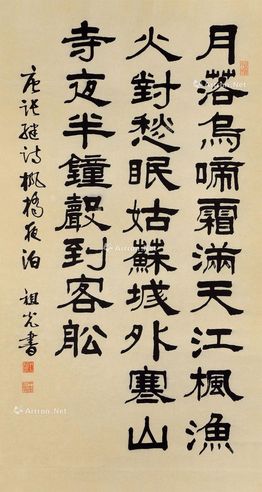 月落烏啼霜滿天江楓漁
火對愁眠姑蘇城外寒山
寺夜半鐘聲到客船
唐張繼詩楓橋夜泊 祖光書
Artron.Net
Artron.Net
Artron.Net
Artron.Net